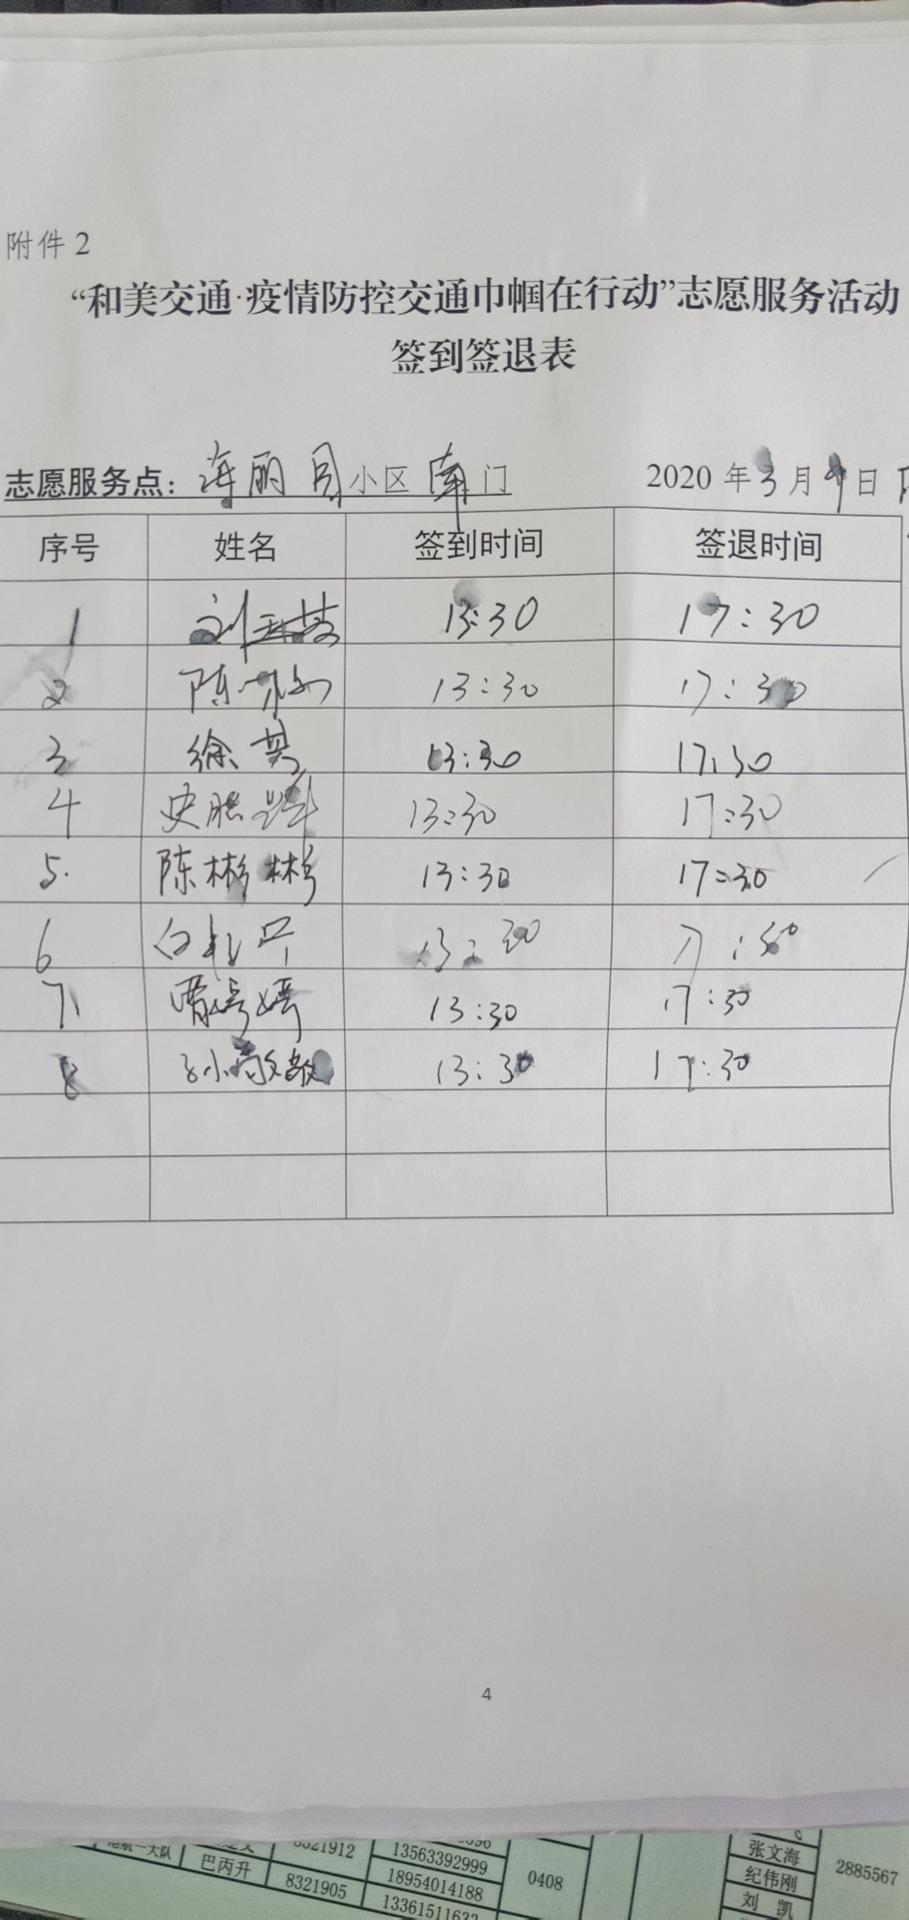 附件2
“和美交通·疫情防控交通巾帼在行动”志愿服务活动
签到签退表
志愿服务点：海丽园小区南门 2020年3月9日
序号 姓名 签到时间 签退时间
1 刘玉英 13:30 17:30
2 陈 13:30 17:30
3 徐英 13:30 17:30
4 史 13:30 17:30
5. 陈彬彬 13:30 17:30
6 白 13:30 17:30
7 婷婷 13:30 17:30
8 孙敬敬 13:30 17:30
4
张文海
大队 8321912 13563392999 纪伟刚 2885567
巴丙升 8321905 18954014188 0408 刘凯